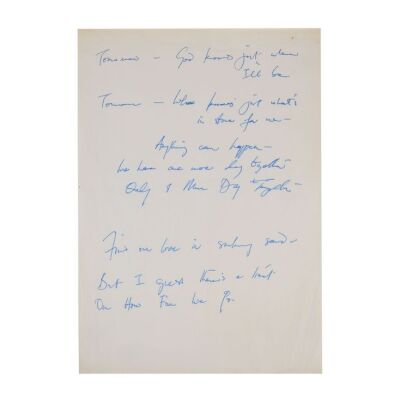 Tomorrow – God knows just where
I'll be
Tomorrow – Who knows just what's
in store for me –
Anything can happen –
We have one more day together
Only 1 More Day Together –
love is sinking sand –
But I guess there's a limit
On How Far We Go